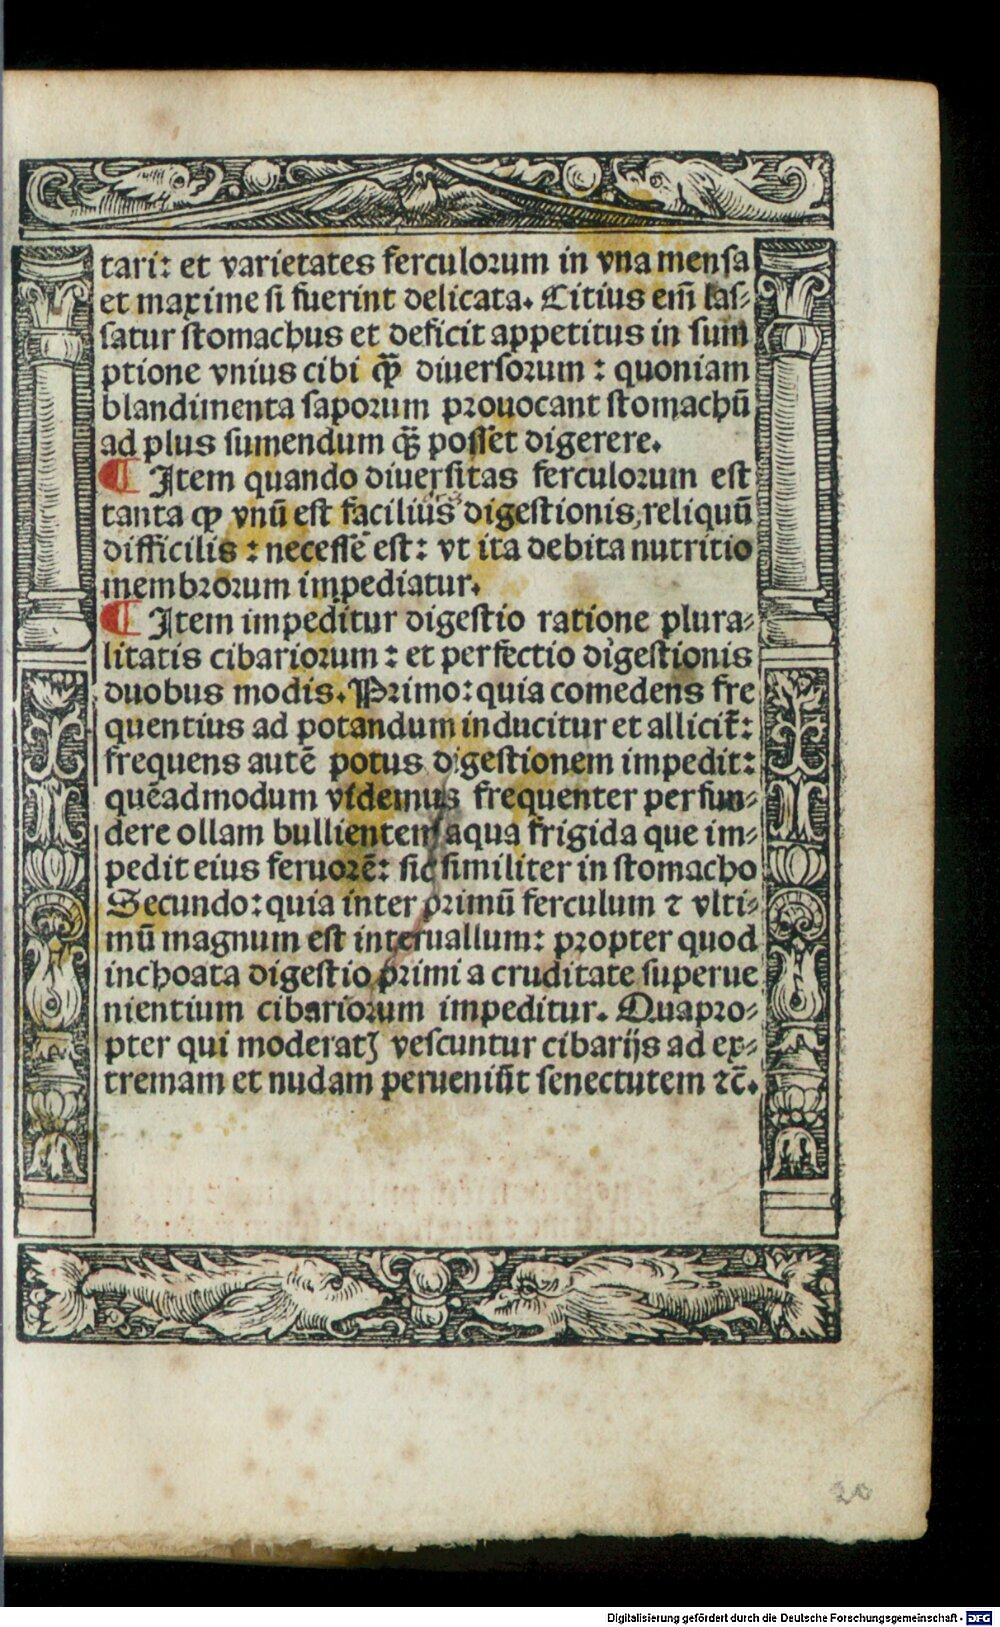 tari: et varietates ferculorum in vna mensa
et maxime si fuerint delicata. Citius em̄ las⸗
satur stomachus et deficit appetitus in sum
ptione vnius cibi qꝫ̄ diuersorum : quoniam
blandimenta saporum prouocant stomachū
ad plus sumendum qꝫ̄ posset digerere.
¶ Item quando diuersitas ferculorum est
tanta ꝙ vnū est facilius digestionis, reliquū
difficilis : necessē est: vt ita debita nutritio
membrorum impediatur.
¶ Item impeditur digestio ratione plura⸗
litatis cibariorum : et perfectio digestionis
duobus modis. Primo: quia comedens fre
quentius ad potandum inducitur et allicit̄:
frequens autē potus digestionem impedit:
quēadmodum videmus frequenter perfun⸗
dere ollam bullientem aqua frigida que im⸗
pedit eius feruorē: sic similiter in stomacho
Secundo: quia inter primū ferculum ⁊ vlti⸗
mū magnum est interuallum: propter quod
inchoata digestio primi a cruditate superue
nientium cibariorum impeditur. Quapro⸗
pter qui moderatꝫ vescuntur cibarijs ad ex⸗
tremam et nudam perueniūt senectutem ⁊c̄.
20
Digitalisierung gefördert durch die Deutsche Forschungsgemeinschaft - DFG